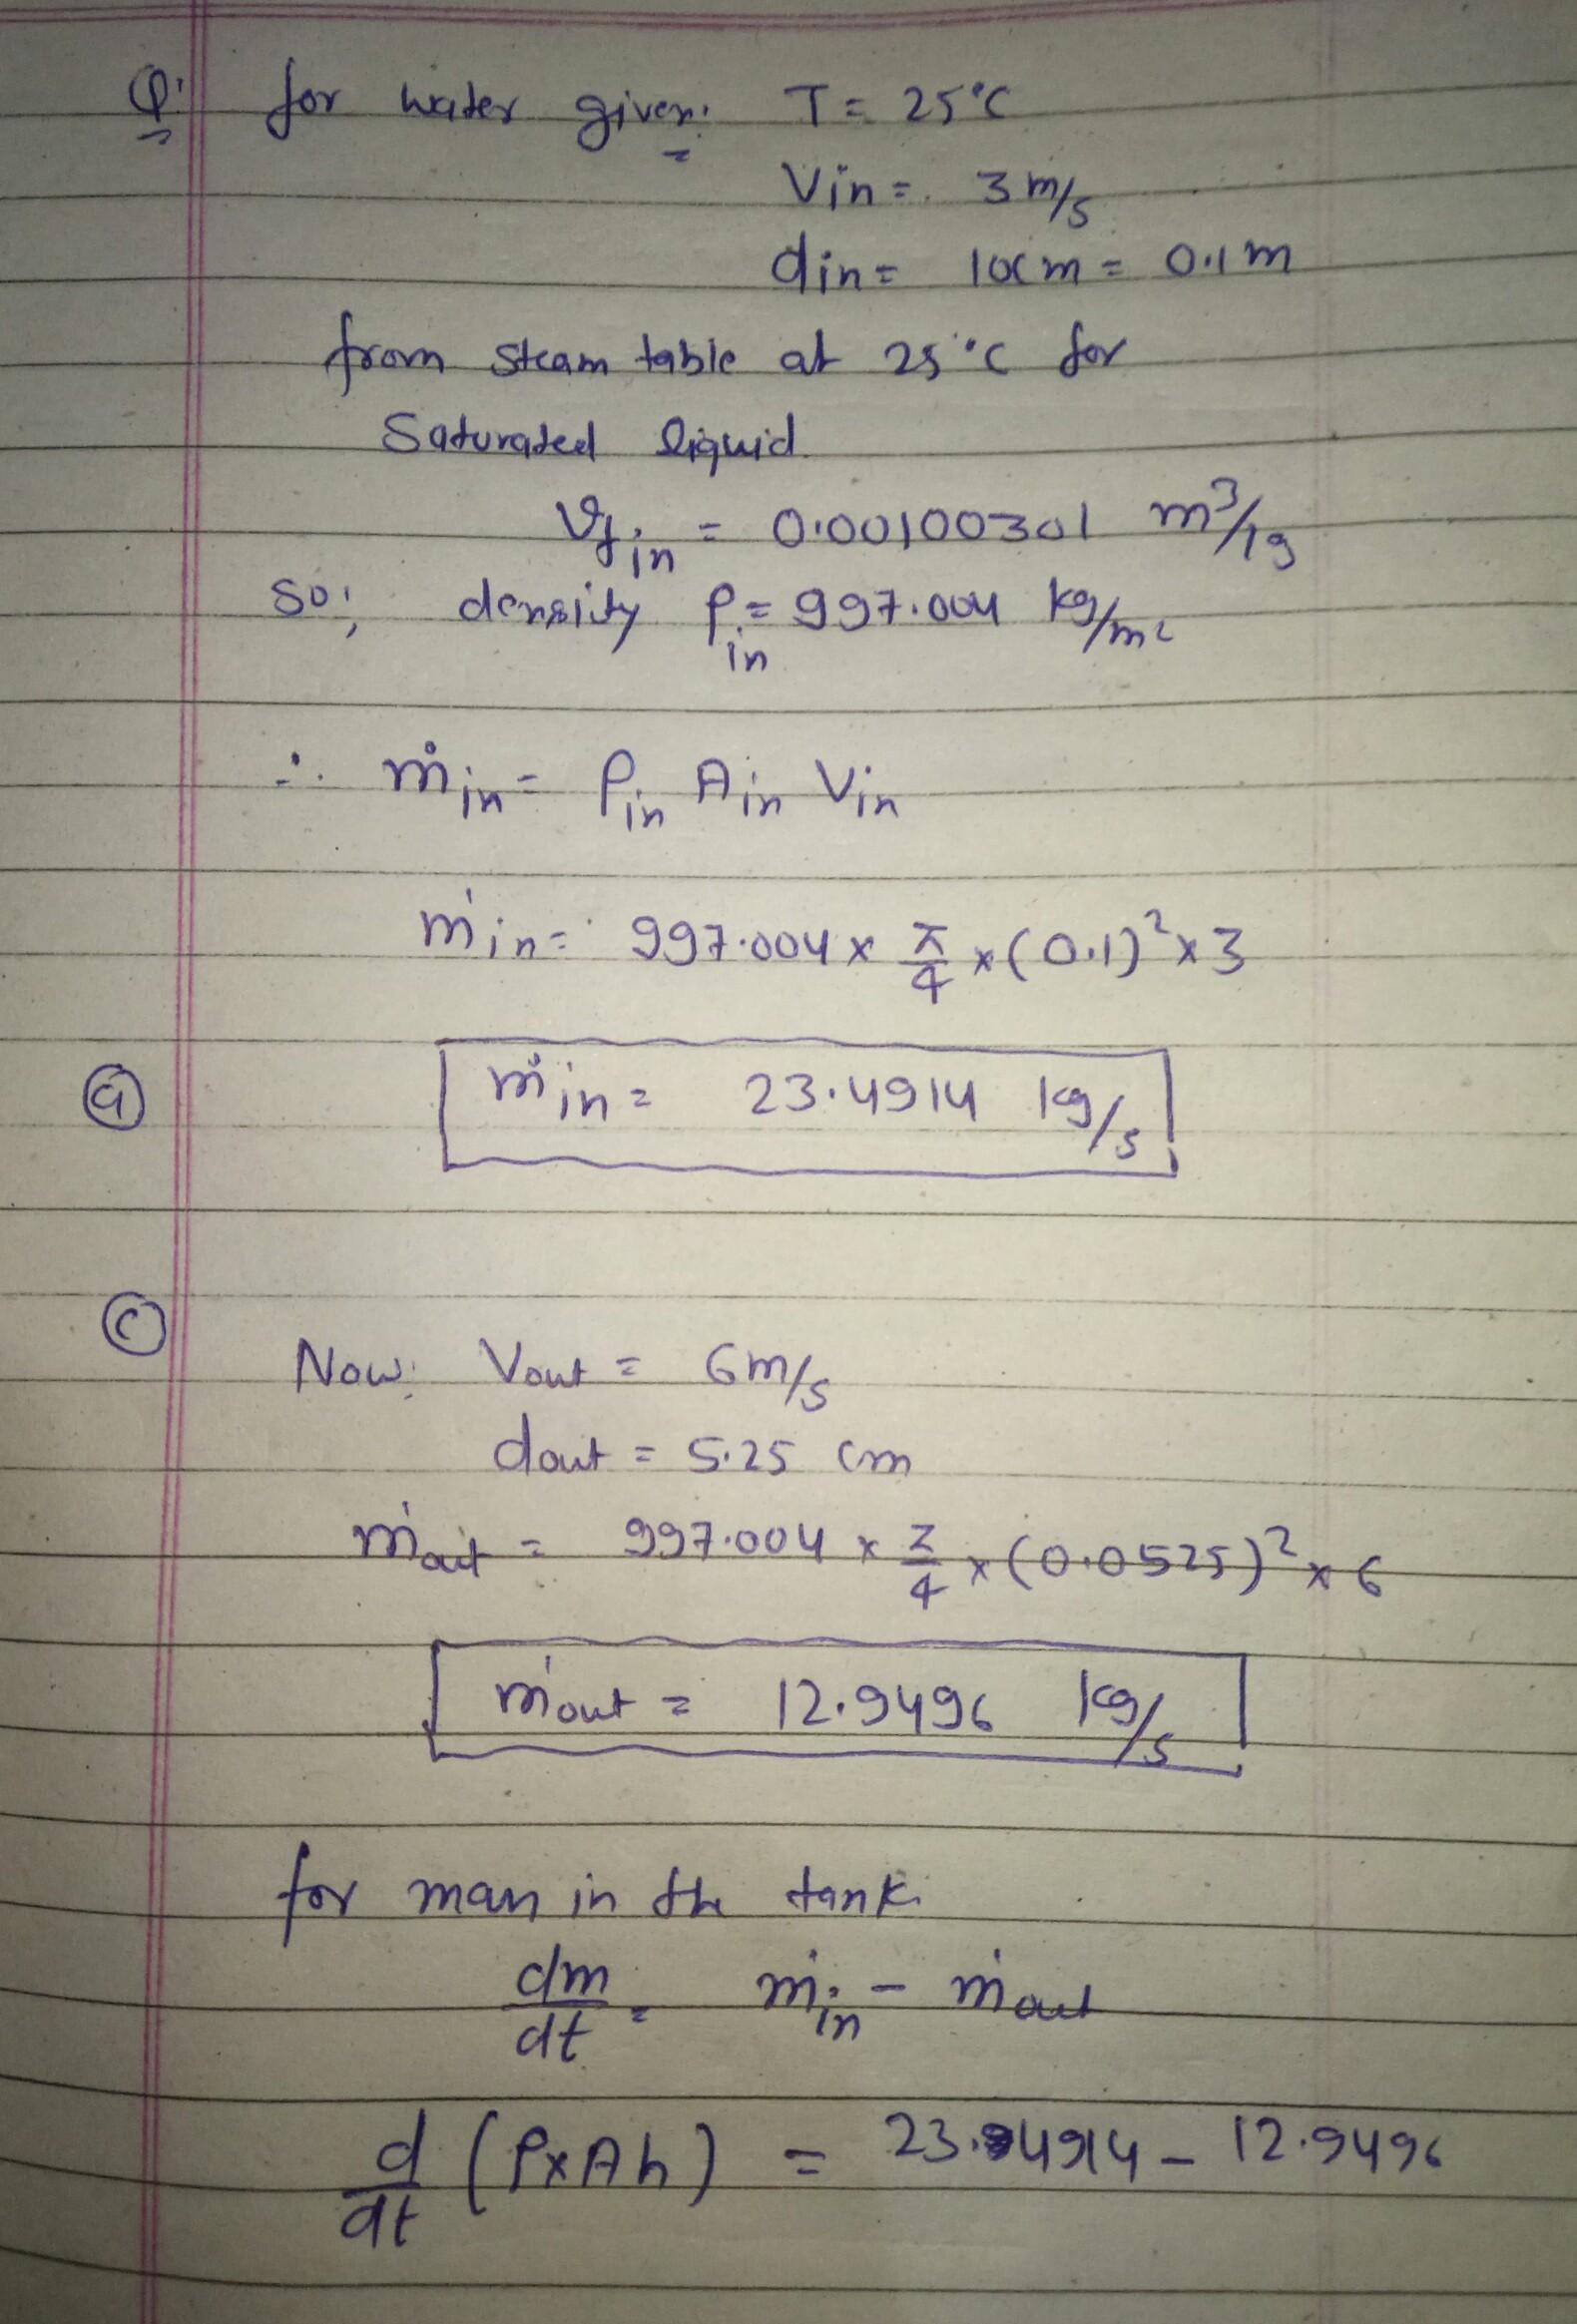 Q: for water given: T = 25°C
Vin = 3 m/s
din = 10cm = 0.1 m
from steam table at 25°C for
Saturated liquid
Vf in = 0.00100301 m³/kg
So; density ρin = 997.004 kg/m²
∴ ṁin = ρin Ain Vin
ṁin = 997.004 × π/4 × (0.1)² × 3
(a) ṁin = 23.4914 kg/s
(c)
Now: Vout = 6 m/s
dout = 5.25 cm
ṁout = 997.004 × π/4 × (0.0525)² × 6
ṁout = 12.9496 kg/s
for mass in the tank
dm/dt = ṁin − ṁout
d/dt (ρ×Ah) = 23.4914 − 12.9496